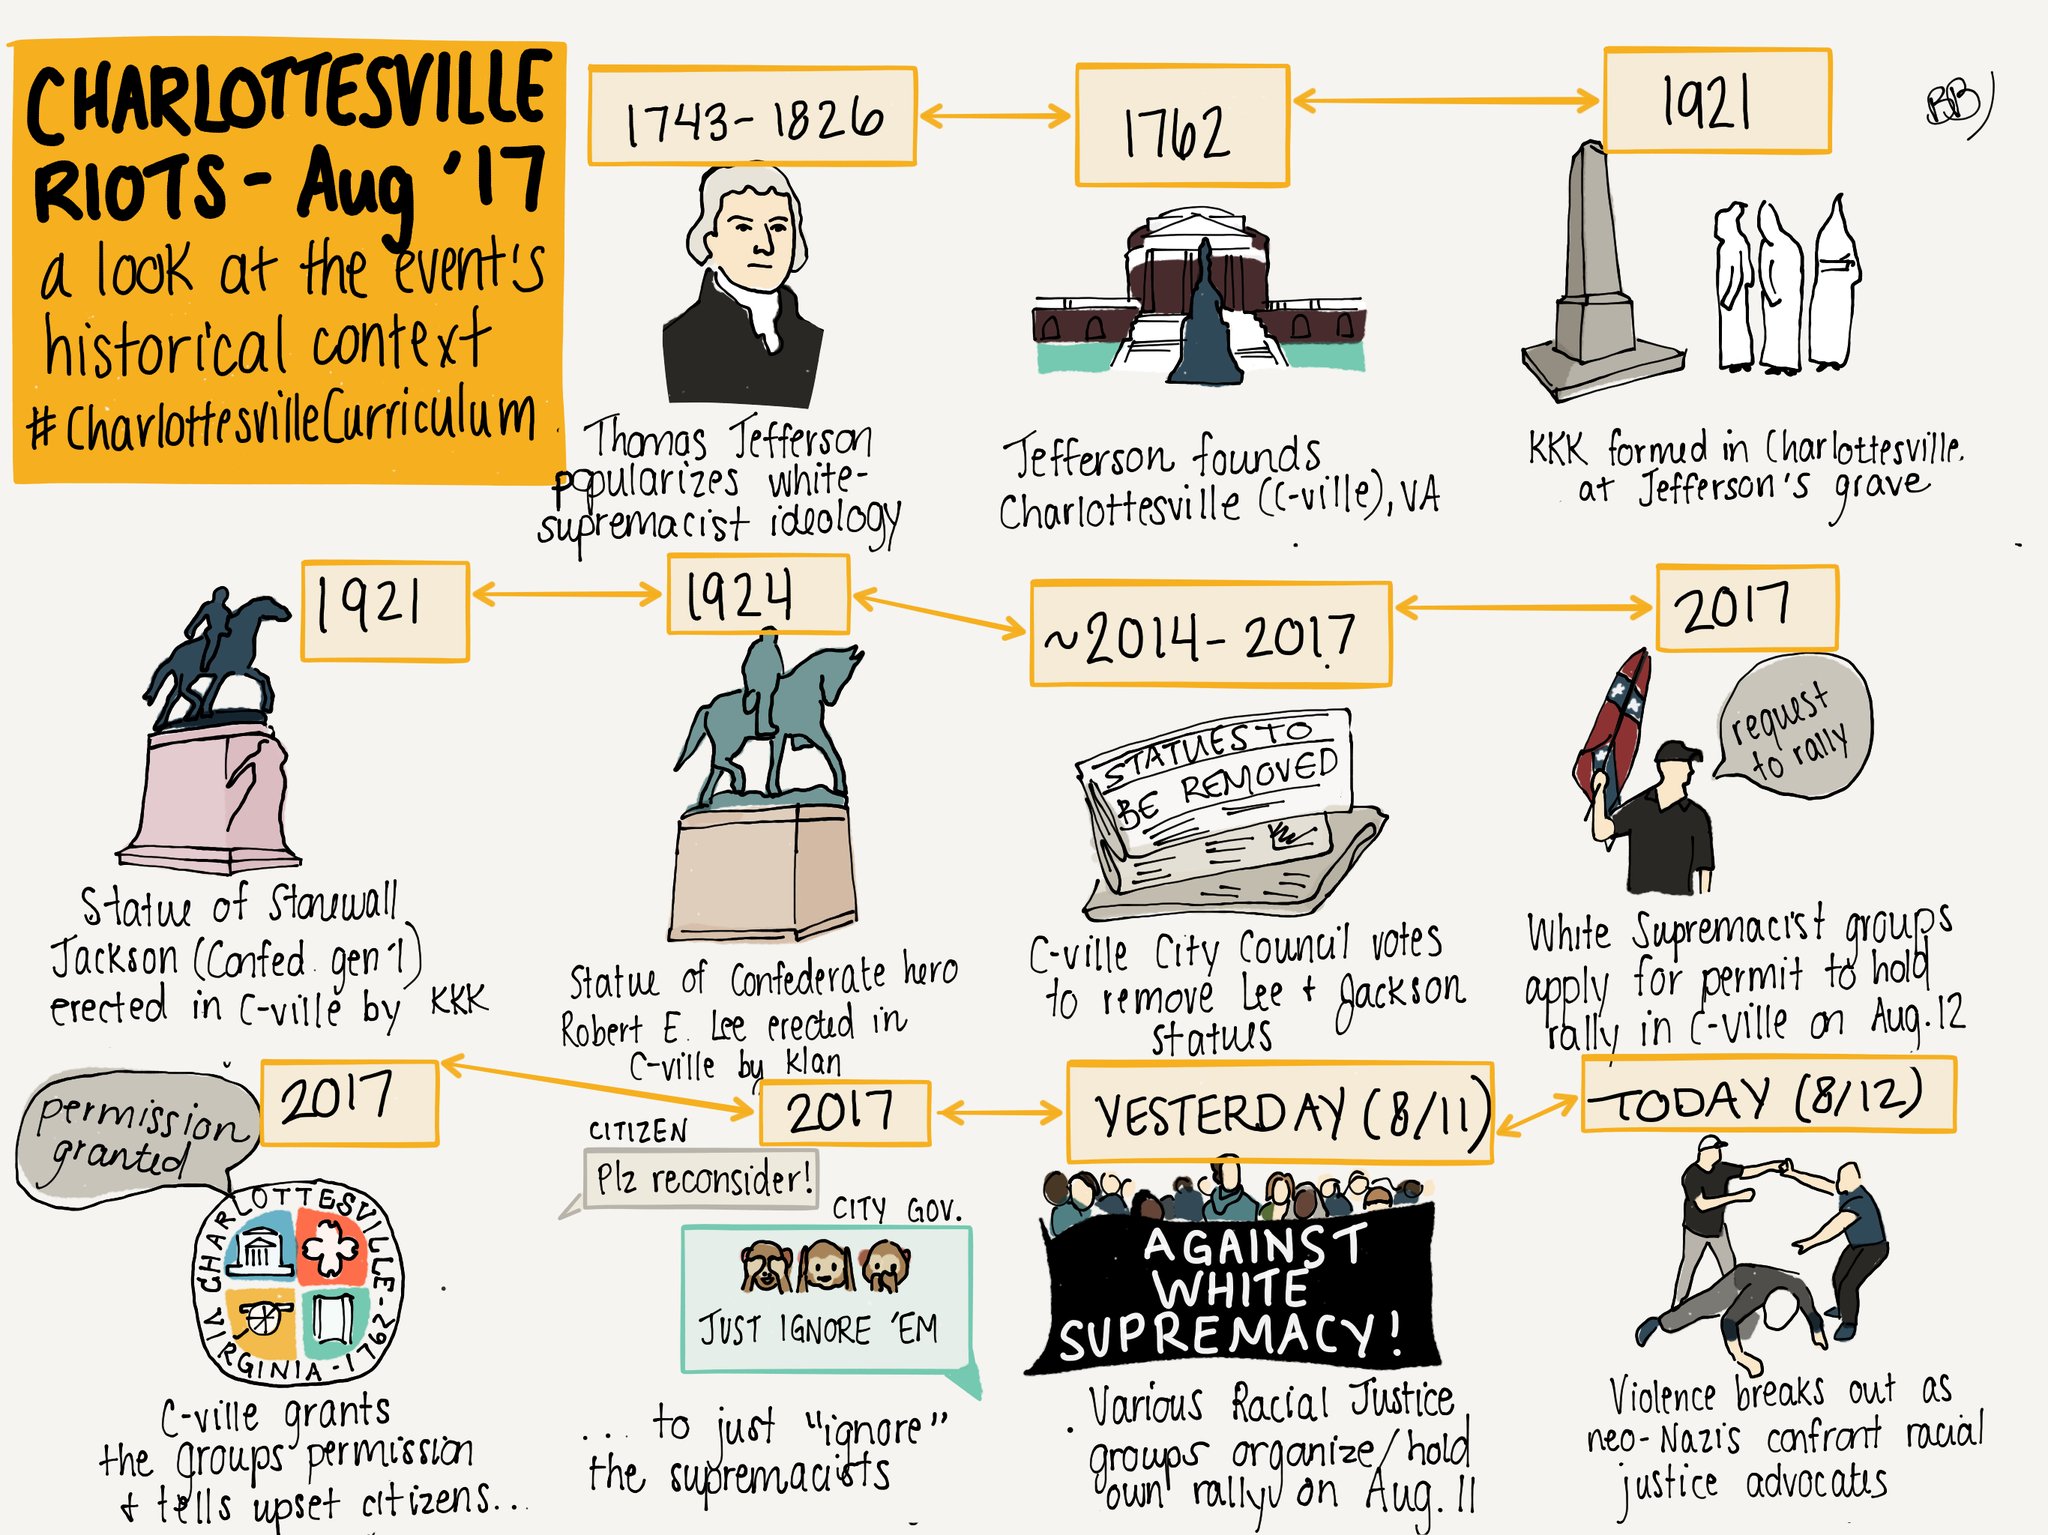 CHARLOTTESVILLE
RIOTS - Aug '17
a look at the event's
historical context
#CharlottesvilleCurriculum
1743-1826
Thomas Jefferson
popularizes white-
supremacist ideology
1762
Jefferson founds
Charlottesville (C-ville), VA
1921
KKK formed in Charlottesville.
at Jefferson's grave
BB
1921
Statue of Stonewall
Jackson (Confed. gen'l)
erected in C-ville by KKK
1924
Statue of Confederate hero
Robert E. Lee erected in
C-ville by Klan
~2014-2017
STATUES TO
BE REMOVED
C-ville City Council votes
to remove Lee + Jackson
statues
2017
request
to rally
White Supremacist groups
apply for permit to hold
rally in C-ville on Aug. 12
2017
permission
granted
CHARLOTTESVILLE - VIRGINIA - 1762
C-ville grants
the groups permission
+ tells upset citizens...
2017
CITIZEN
Plz reconsider!
CITY GOV.
JUST IGNORE 'EM
... to just "ignore"
the supremacists
YESTERDAY (8/11)
AGAINST
WHITE
SUPREMACY!
Various Racial Justice
groups organize/hold
own rally on Aug. 11
TODAY (8/12)
Violence breaks out as
neo-Nazis confront racial
justice advocates